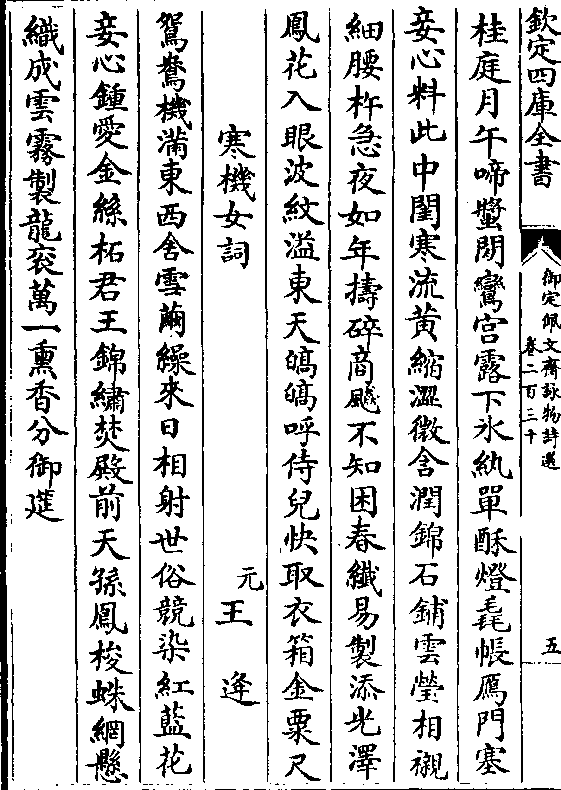 欽定四庫全書
御定佩文齋詠物詩選
卷二百三十
五
桂庭月午啼螿閒鸞宮露下氷紈單酥燈毳帳鴈門塞
妾心料此中閨寒流黄縮澀微含潤錦石鋪雲瑩相襯
細腰杵急夜如年擣碎商飈不知困春纖易製添光澤
鳳花入眼波紋溢東天皜皜呼侍兒快取衣箱金粟尺
寒機女詞
元王逄
鴛鴦機滿東西舍雪繭繰來日相射世俗競染紅藍花
妾心鍾愛金絲柘君王錦繡焚殿前天孫鳳梭蛛網懸
織成雲霧製龍衮萬一熏香分御筵